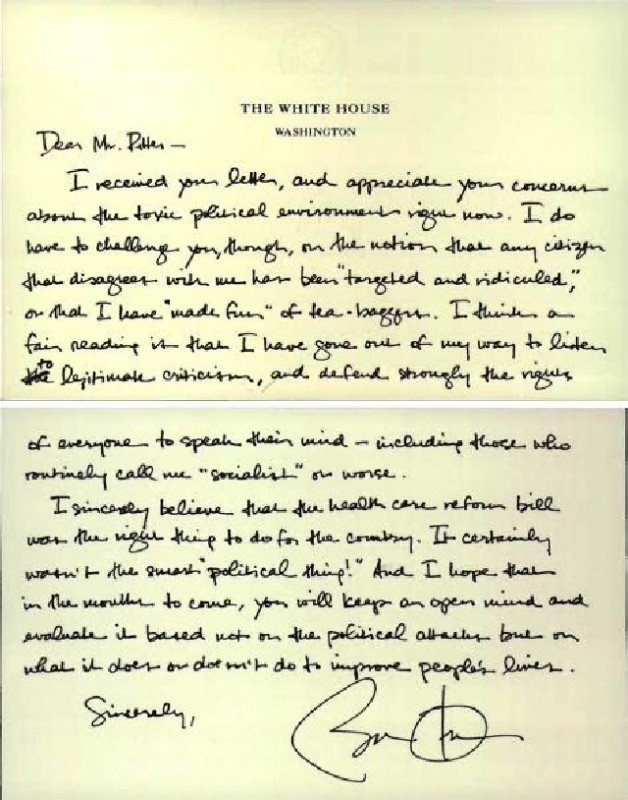 THE WHITE HOUSE
WASHINGTON
Dear Mr. Ritter —
I received your letter, and appreciate your concerns
about the toxic political environment right now. I do
have to challenge you, though, on the notion that any citizen
that disagrees with me has been "targeted and ridiculed,"
or that I have "made fun" of tea-baggers. I think a
fair reading is that I have gone out of my way to listen
to legitimate criticism, and defend strongly the right
of everyone to speak their mind — including those who
routinely call me "socialist" or worse.
I sincerely believe that the health care reform bill
was the right thing to do for the country. It certainly
wasn't the smart "political thing!" And I hope that
in the months to come, you will keep an open mind and
evaluate it based not on the political attacks but on
what it does or doesn't do to improve people's lives.
Sincerely,